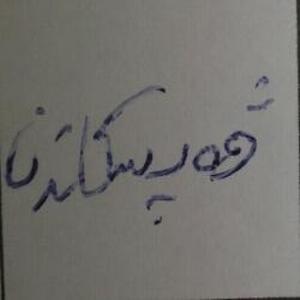 ڤەپسکاندن